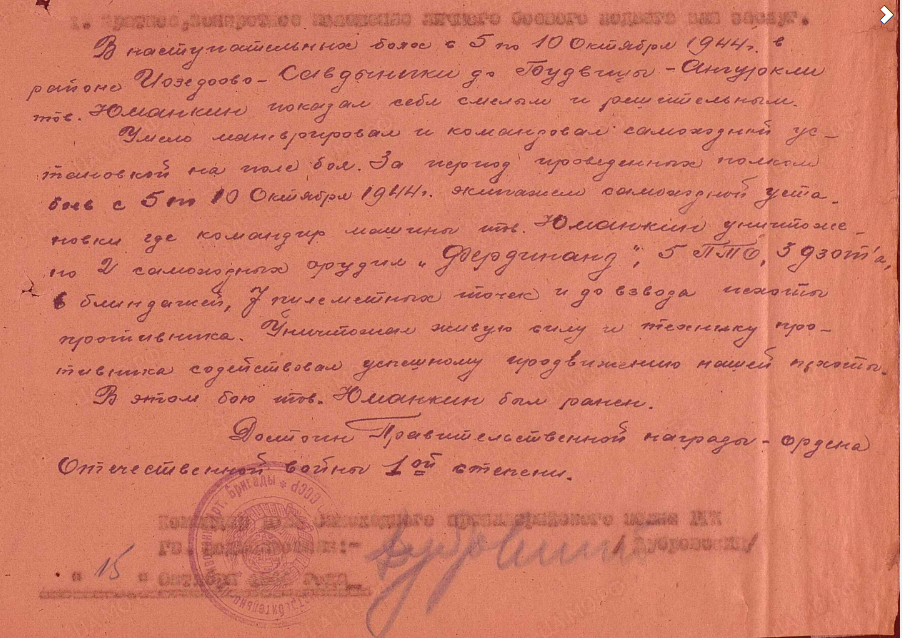 I. Краткое, конкретное изложение личного боевого подвига или заслуг.
В наступательных боях с 5 по 10 Октября 1944г. в
районе Иозедоово - Савдыники до Гоудвицы - Ангуокли
тов. Юманкин показал себя смелым и решительным.
Умело маневрировал и командовал самоходной ус-
тановкой на поле боя. За период проведенных полком
боев с 5 по 10 Октября 1944г. экипажем самоходной уста-
новки где командир машины тов. Юманкин уничтоже-
но 2 самоходных орудия „Фердинанд", 5 ПТО, 3 дзот'а,
6 блиндажей, 7 пулеметных точек и до взвода пехоты
противника. Уничтожая живую силу и технику про-
тивника содействовал успешному продвижению нашей пехоты.
В этом бою тов. Юманкин был ранен.
Достоин Правительственной награды - ордена
Отечественной войны 1ой степени.
Командир самоходного артиллерийского полка РГК
Гв. Подполковник:- /Дубровский/
" 15 " Октября 1944 года